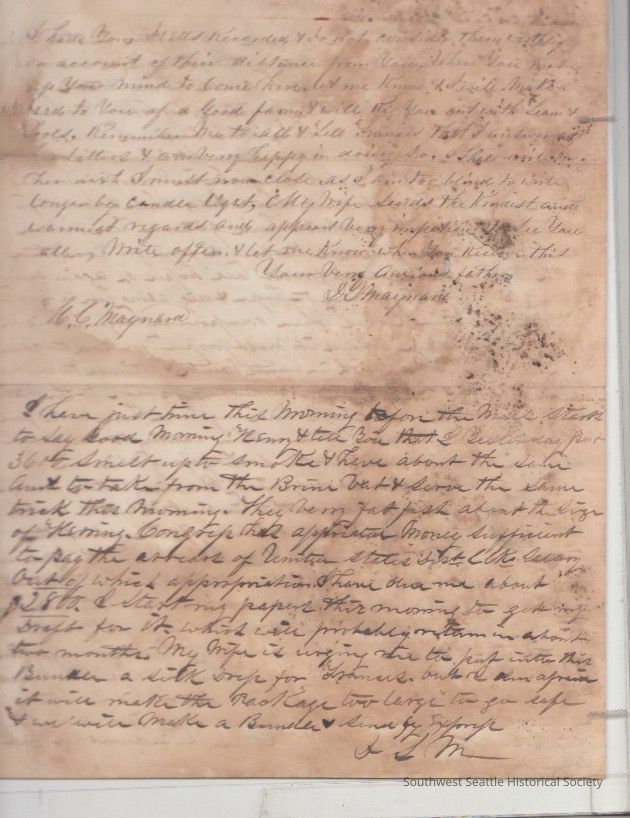 I have Your
on account of their distance from You. When You make
up Your mind to come here let me Know & I will Make a
to You of a Good farm & will fit You out with team &
tools. Remember Me to all & tell Frances that I
letters & am Very happy in doing So. I Shall write
her next I must now close as I am too blind to write
longer by candle light. My Wife Sends the Kindest and
warmest regards and appears Very impatient to See You
all, Write often & let me Know when You Receive this
Your Very Anxious father
D S Maynard
H. C. Maynard
I have just time this Morning before the Mail Starts
to Say Good Morning Henry & tell You that I Yesterday put
360 Smelt up to Smoke & have about the Same
Amt to take from the Brine Vat & Serve the Same
trick this Morning. They Very fat fish about the Size
of Herring. Congress has appropriated Money Sufficient
to pay the arrears of United States Dist. Salary
Out of which appropriation I have due me about
$2800. I Start my papers this morning to get my
Draft for it which will probably return in about
two months. My Wife is urging me to put into this
Bundle a Silk Dress for Frances. but I am afraid
it will make the Package too large to go safe
& we will Make a Bundle & Send by Express
D S M
Southwest Seattle Historical Society